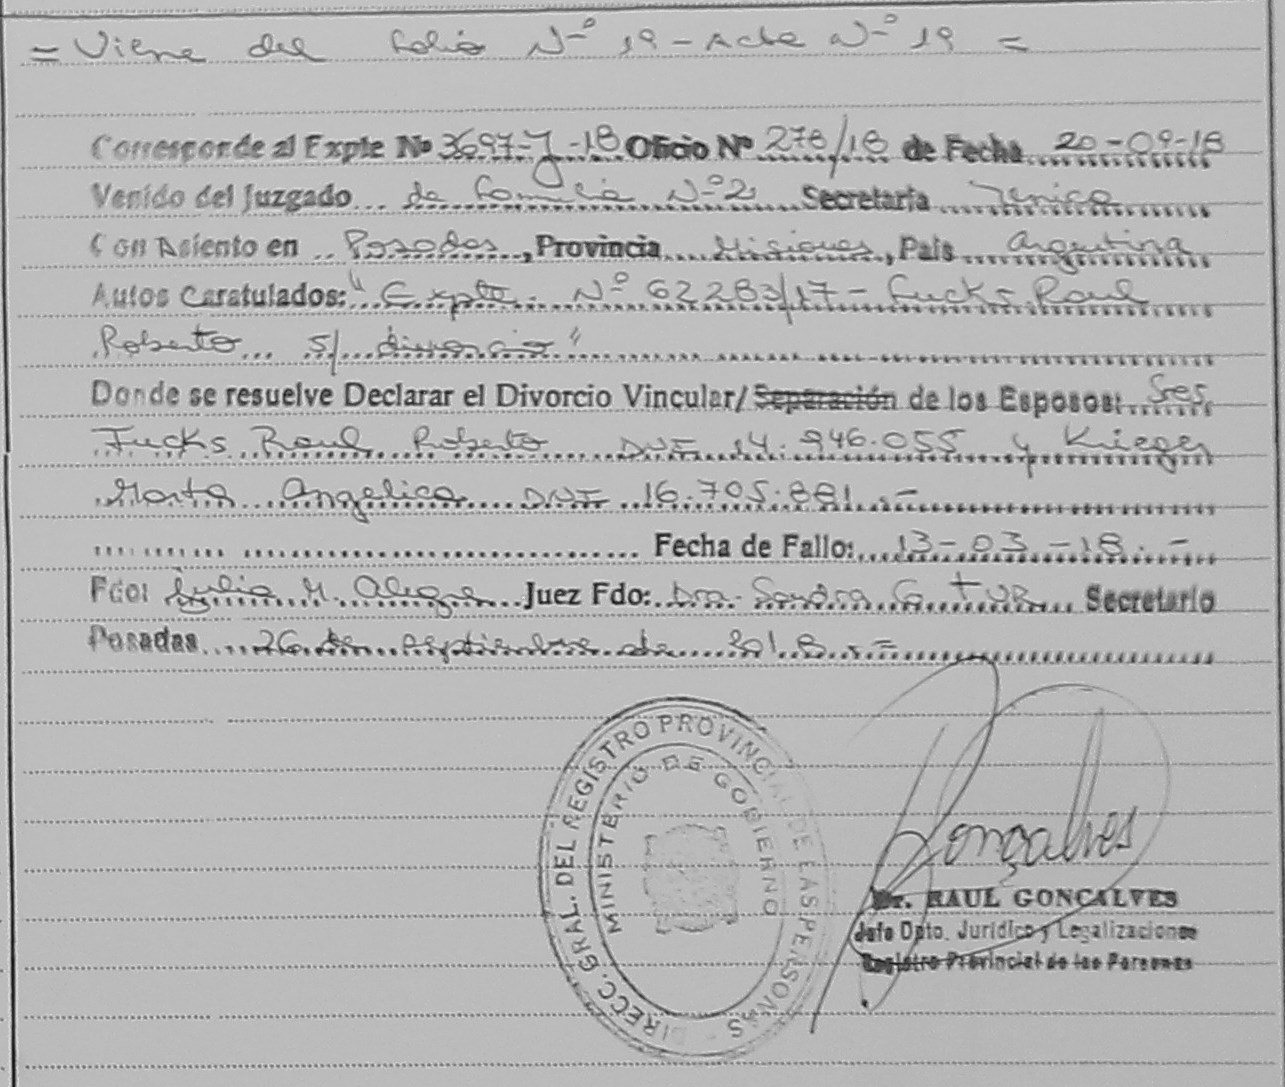 = Viene del folio Nº 19 - Acta Nº 19 =
Corresponde al Expte Nº 3697-J-18 Oficio Nº 278/18 de Fecha 20-09-18
Venido del Juzgado de Familia Nº 2 Secretaría Única
Con Asiento en Posadas, Provincia Misiones, País Argentina
Autos Caratulados: "Expte. Nº 62283/17 - Fucks Raul
Roberto S/ divorcio"
Donde se resuelve Declarar el Divorcio Vincular/Separación de los Esposos: Sres
Fucks Raul Roberto DNI 14.946.055 y Krieger
Marta Angelica DNI 16.705.881.-
Fecha de Fallo: 13-03-18.-
Fdo: Julia M. Alegre Juez Fdo: Dra. Sandra G. Secretario
Posadas 26 de septiembre de 2018.=
DIRECC. GRAL. DEL REGISTRO PROVINCIAL DE LAS PERSONAS -
MINISTERIO DE GOBIERNO
Gonçalves
Dr. RAUL GONCALVES
Jefe Dpto. Jurídico y Legalizaciones
Registro Provincial de las Personas